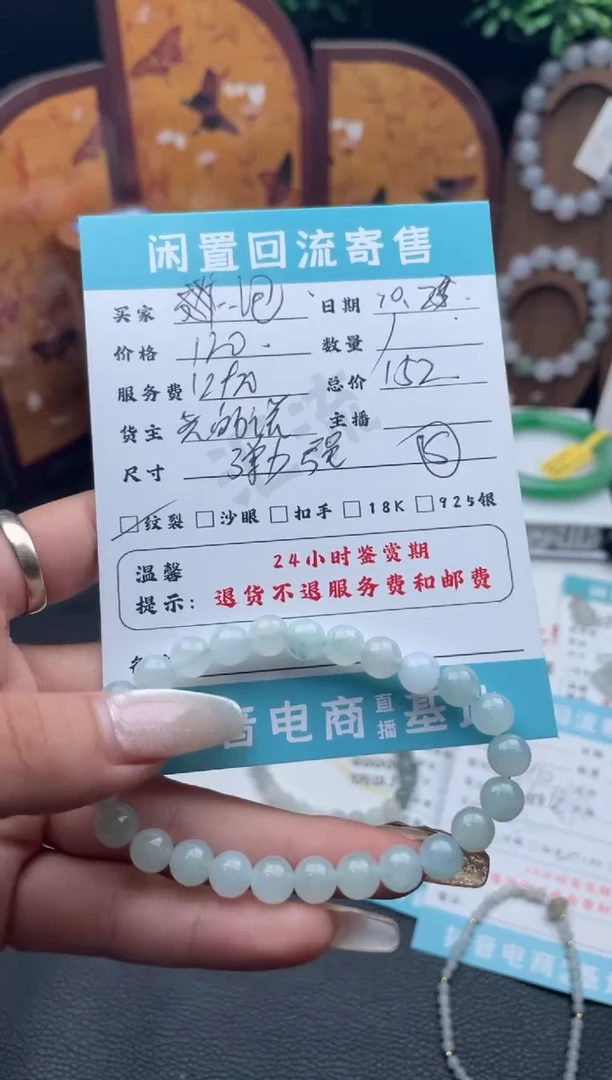 闲置回流寄售
买家 日期 10.
价格 120. 数量 1
服务费 12+20 总价 152
货主 主播
尺寸 弹力强 15
纹裂 沙眼 扣手 18K 925银
温馨 24小时鉴赏期
提示: 退货不退服务费和邮费
音电商直播基
抖音电商